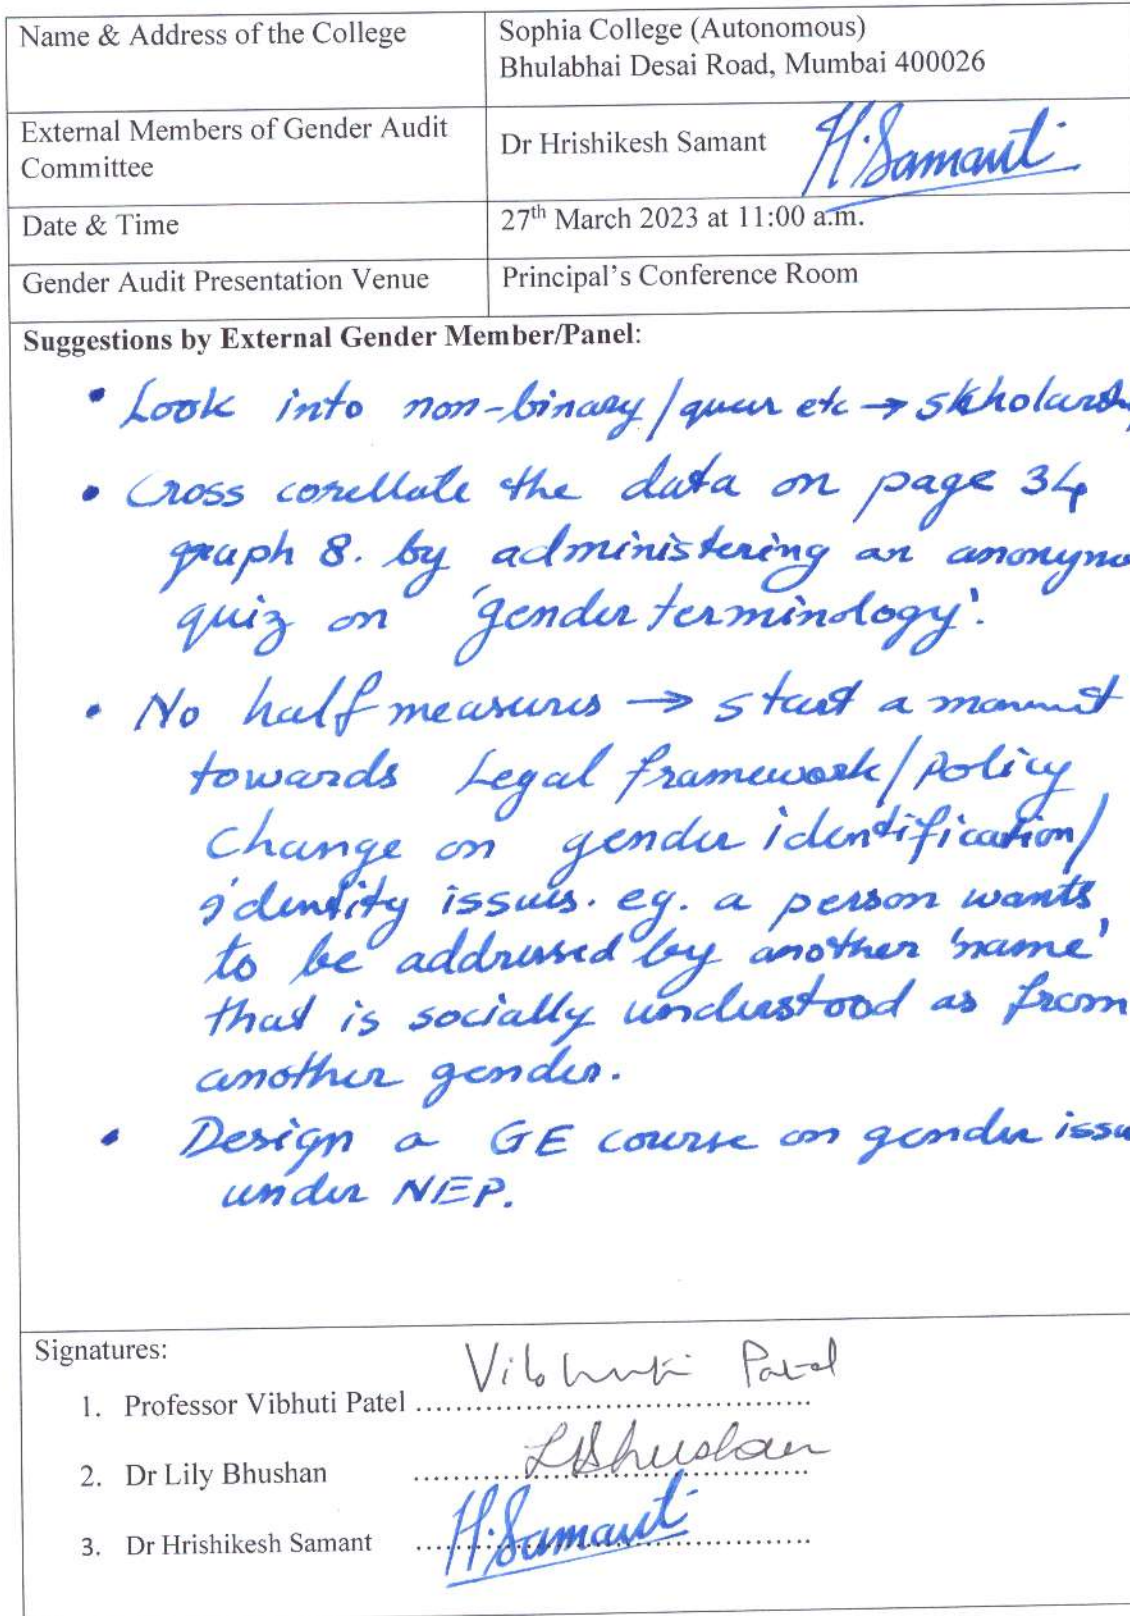 Name & Address of the College
Sophia College (Autonomous)
Bhulabhai Desai Road, Mumbai 400026
External Members of Gender Audit
Committee
Dr Hrishikesh Samant
H. Samant
Date & Time
27th March 2023 at 11:00 a.m.
Gender Audit Presentation Venue
Principal's Conference Room
Suggestions by External Gender Member/Panel:
• Look into non-binary/queer etc →
• Cross corellate the data on page 34
graph 8. by administering an anonymo
quiz on 'gender terminology'.
• No half measures → start a
towards Legal framework/policy
Change on gender identification/
identity issues. eg. a person wants
to be addressed by another 'name'
that is socially understood as from
another gender.
• Design a GE course on gender issu
under NEP.
Signatures:
Vibhuti Patel
1. Professor Vibhuti Patel ..........................................
LBhushan
2. Dr Lily Bhushan ..........................................
H. Samant
3. Dr Hrishikesh Samant ..........................................